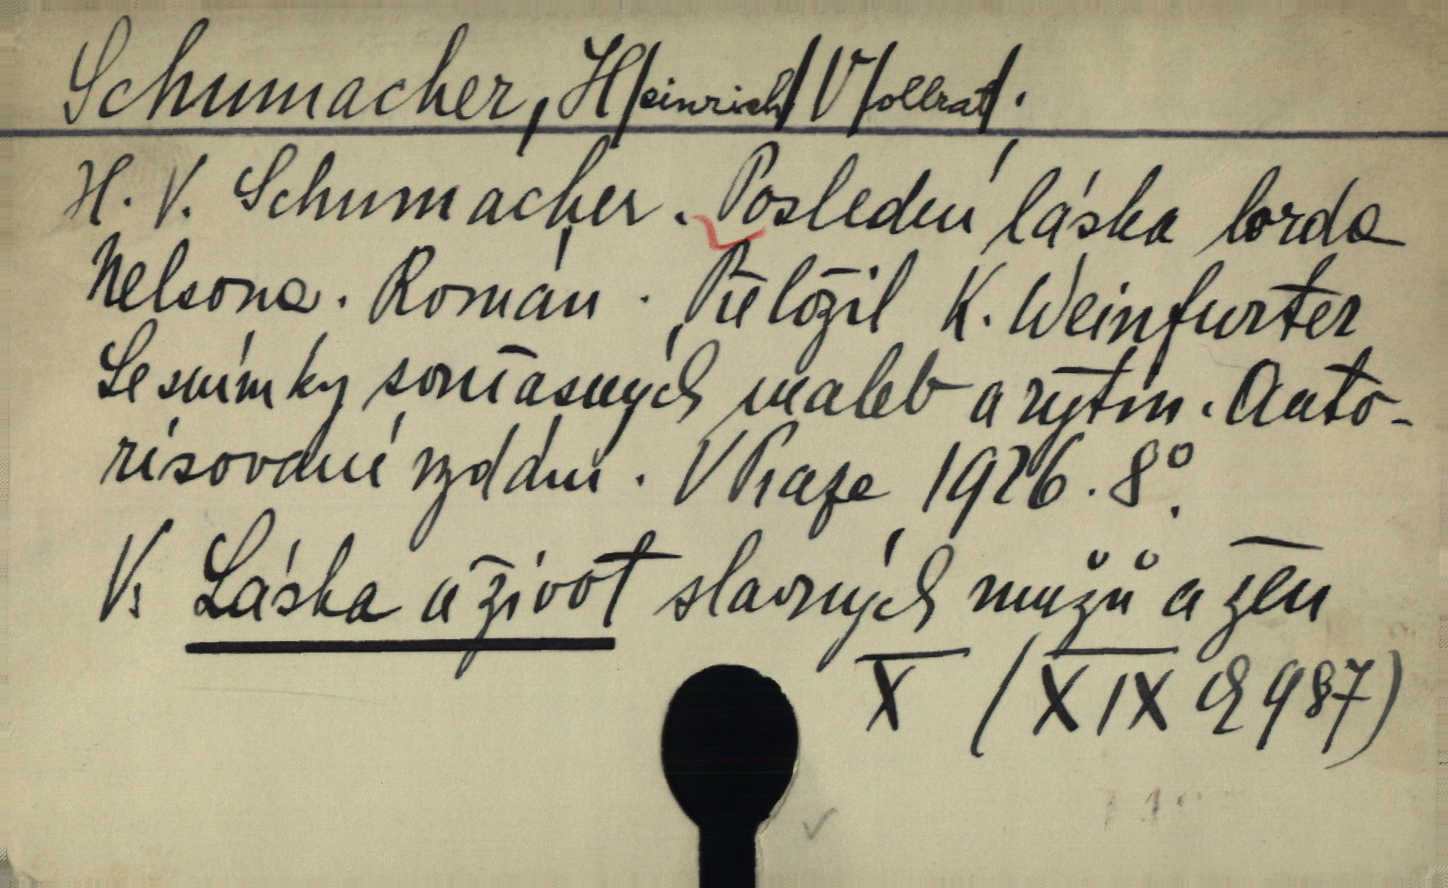 Schumacher, H/einrich/ V/ollrat/.
H. V. Schumacher. Poslední láska lorda
Nelsona. Román. Přeložil K. Weinfurter
Se snímky současných maleb a rytin. Auto-
risované vydání. V Praze 1926. 8°.
V: Láska a život slavných mužů a žen
X (XIX d 987)